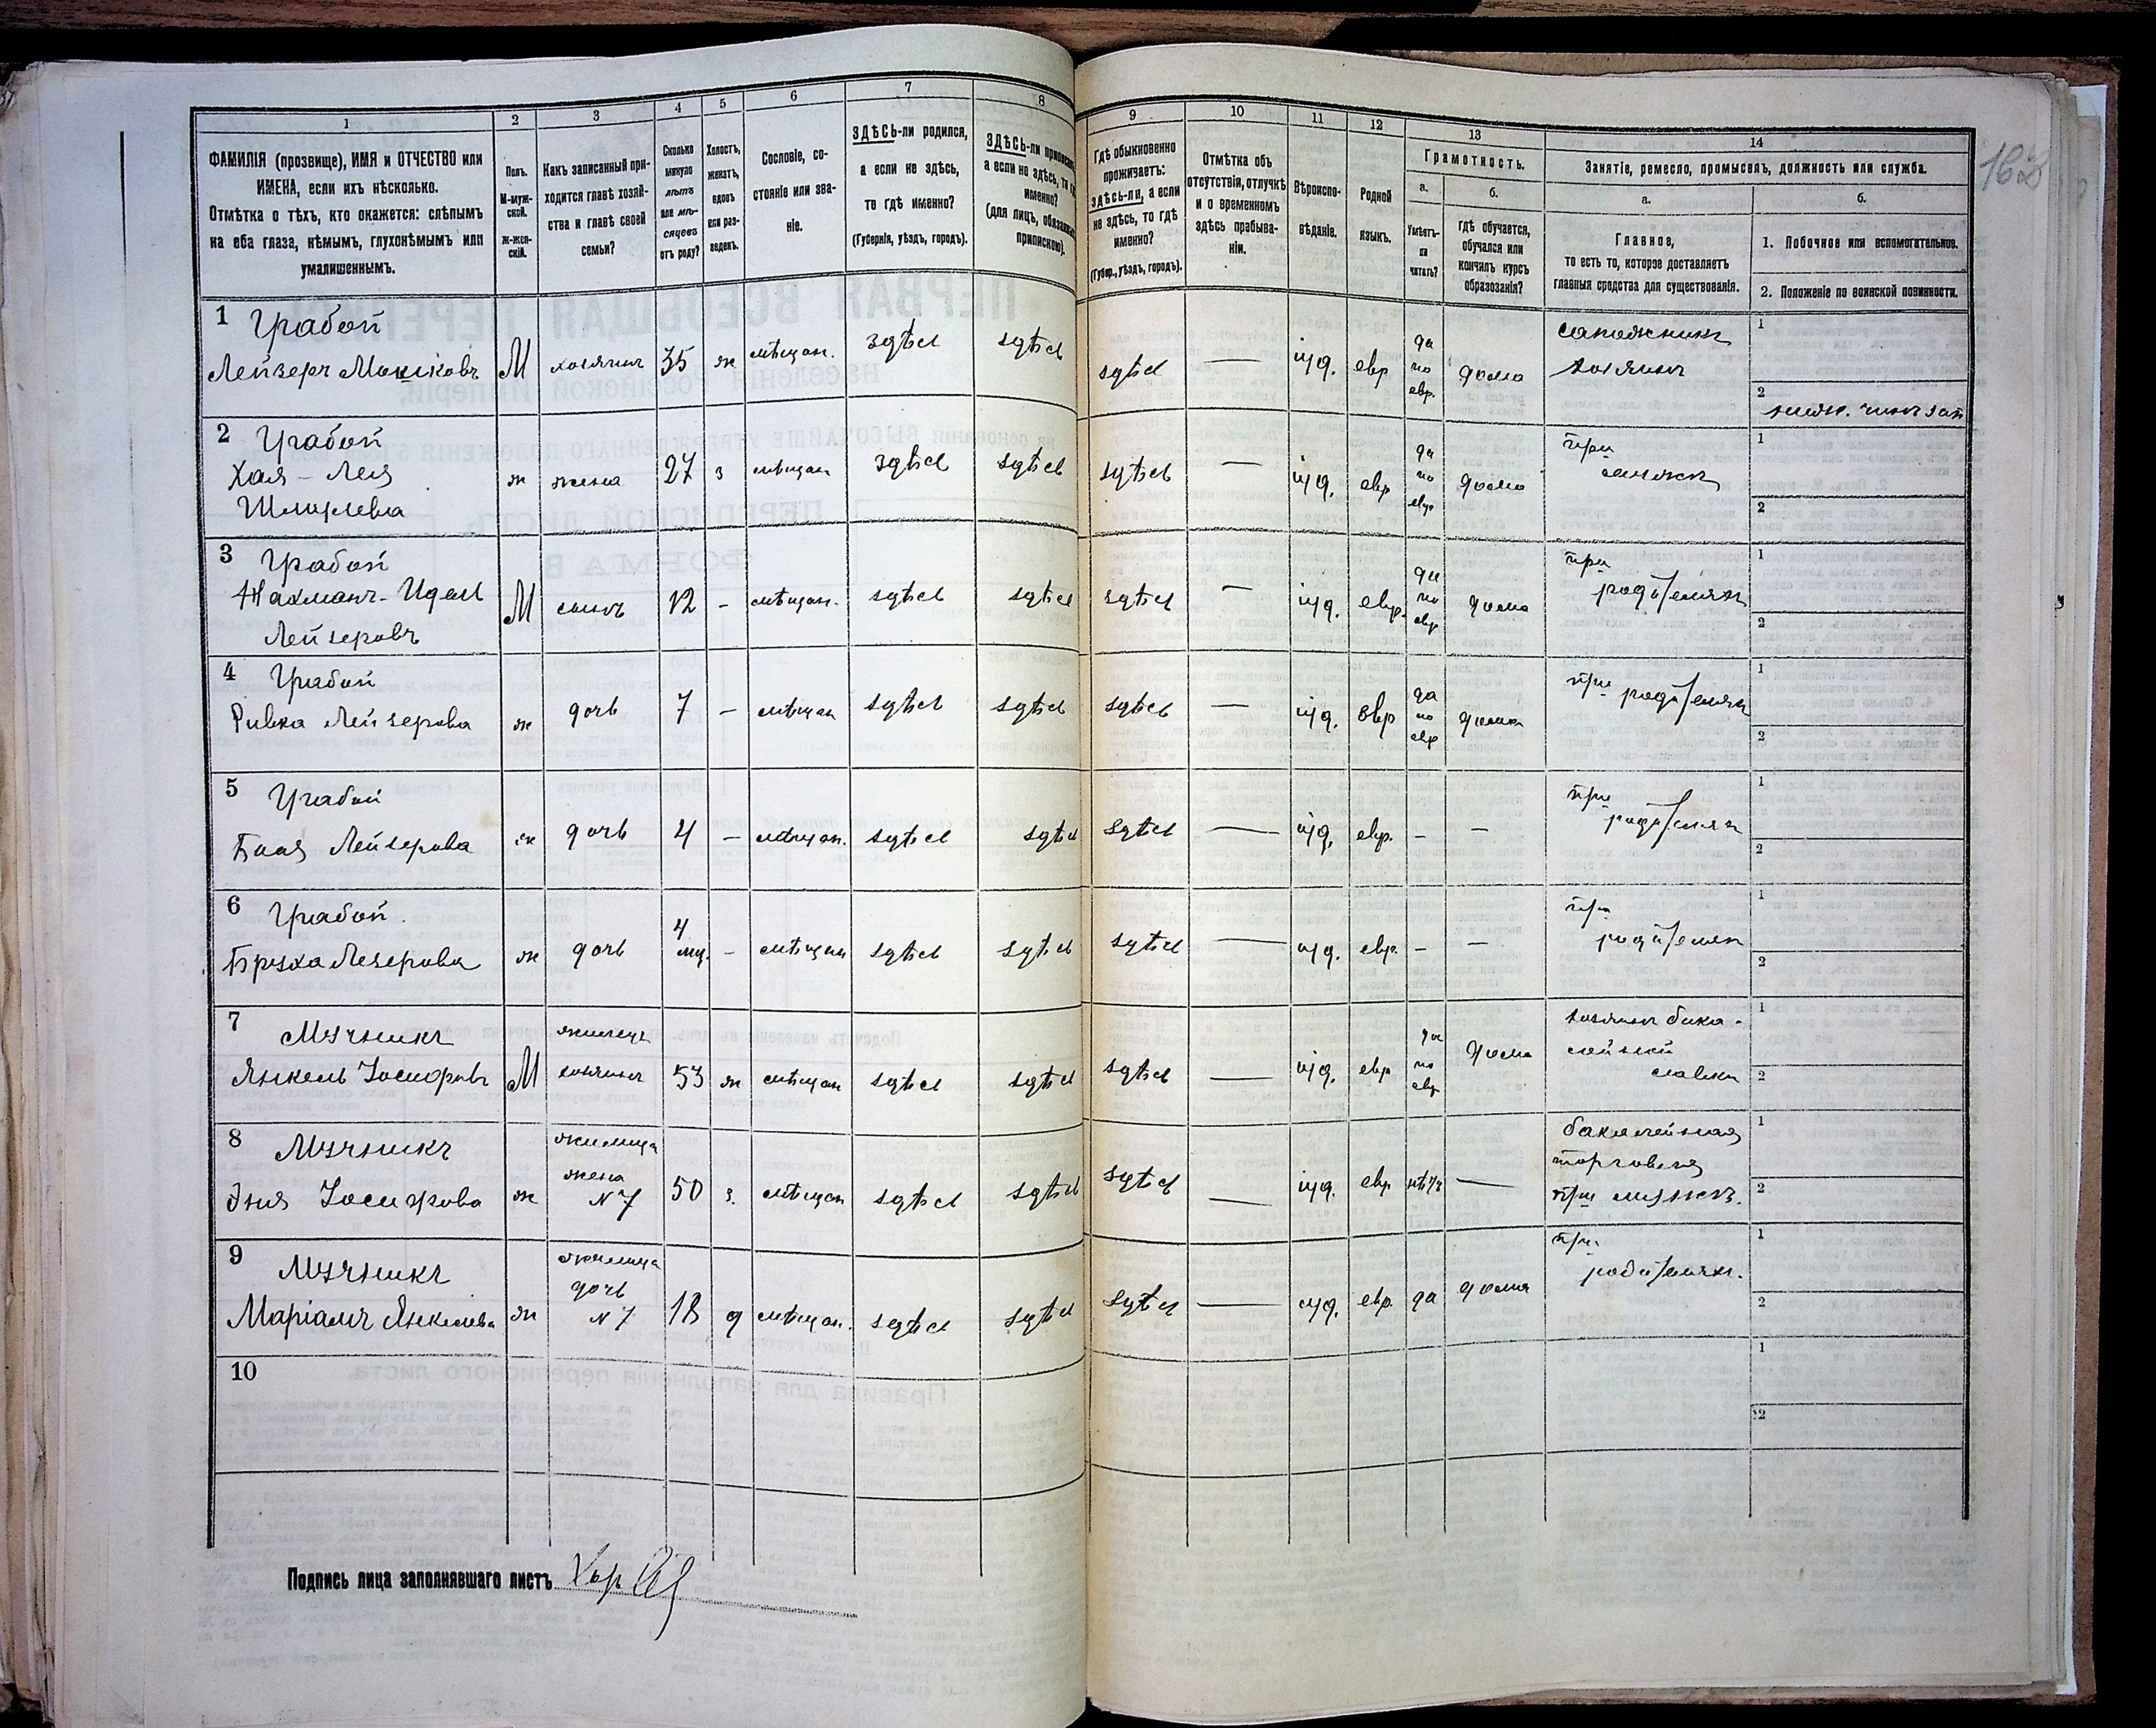 1
2
3
4
5
6
7
8
ФАМИЛІЯ (прозвище), ИМЯ и ОТЧЕСТВО или
ИМЕНА, если ихъ нѣсколько.
Отмѣтка о тѣхъ, кто окажется: слѣпымъ
на оба глаза, нѣмымъ, глухонѣмымъ или
умалишеннымъ.
Полъ.
М-муж-
ской.
Ж-жен-
скій.
Какъ записанный при-
ходится главѣ хозяй-
ства и главѣ своей
семьи?
Сколько
минуло
лѣтъ
или мѣ-
сяцевъ
отъ роду?
Холостъ,
женатъ,
вдовъ
или раз-
веденъ.
Сословіе, со-
стояніе или зва-
ніе.
ЗДѢСЬ-ли родился,
а если не здѣсь,
то гдѣ именно?
(Губернія, уѣздъ, городъ).
ЗДѢСЬ-ли
а если не здѣсь,
именно?
(для лицъ,
припискою).
9
10
11
12
13
14
Гдѣ обыкновенно
проживаетъ:
здѣсь-ли, а если
не здѣсь, то гдѣ
именно?
(Губер., уѣздъ, городъ).
Отмѣтка объ
отсутствіи, отлучкѣ
и о временномъ
здѣсь пребыва-
ніи.
Вѣроиспо-
вѣданіе.
Родной
языкъ.
Грамотность.
а.
Умѣетъ-
ли
читать?
б.
Гдѣ обучается,
обучался или
кончилъ курсъ
образованія?
Занятіе, ремесло, промыселъ, должность или служба.
а.
Главное,
то есть то, которое доставляетъ
главныя средства для существованія.
б.
1. Побочное или вспомогательное.
2. Положеніе по воинской повинности.
1 Грабой
Лейзеръ Мошковъ М хозяинъ 35 ж мѣщан. здѣсь здѣсь здѣсь — іуд. евр да по евр. дома сапожникъ хозяинъ 1 2
2 Грабой
Хая - Лея
Шмилева ж жена 27 з мѣщан здѣсь здѣсь здѣсь — іуд. евр да по евр дома при 1 2
3 Грабой
Нахманъ - Идель
Лейзеровъ М сынъ 12 - мѣщан. здѣсь здѣсь здѣсь — іуд. евр. да по евр дома при родителяхъ 1 2
4 Грабой
Ривка Лейзерова ж дочь 7 - мѣщан здѣсь здѣсь здѣсь — іуд. евр да по евр дома при родителяхъ 1 2
5 Грабой
Лейзерова ж дочь 4 - мѣщан. здѣсь здѣсь здѣсь — іуд. евр. - - при родителяхъ 1 2
6 Грабой.
Бруха Лезерова ж дочь 4 мц. - мѣщан здѣсь здѣсь здѣсь — іуд. евр. - - при родителяхъ 1 2
7 Мучникъ
Янкель Іосифовъ М жилецъ хозяинъ 53 ж мѣщан здѣсь здѣсь здѣсь — іуд. евр да по евр дома хозяинъ бака-
лейной
лавки 1 2
8 Мучникъ
Эня Іосифова ж жилица жена N 7 50 з. мѣщан здѣсь здѣсь здѣсь — іуд. евр нѣтъ — бакалейная
торговля
при мужѣ. 1 2
9 Мучникъ
Маріамъ Янкелева ж жилица дочь N 7 18 д мѣщан. здѣсь здѣсь здѣсь — іуд. евр. да дома при родителяхъ. 1 2
10 1 2
Подпись лица заполнявшаго листъ